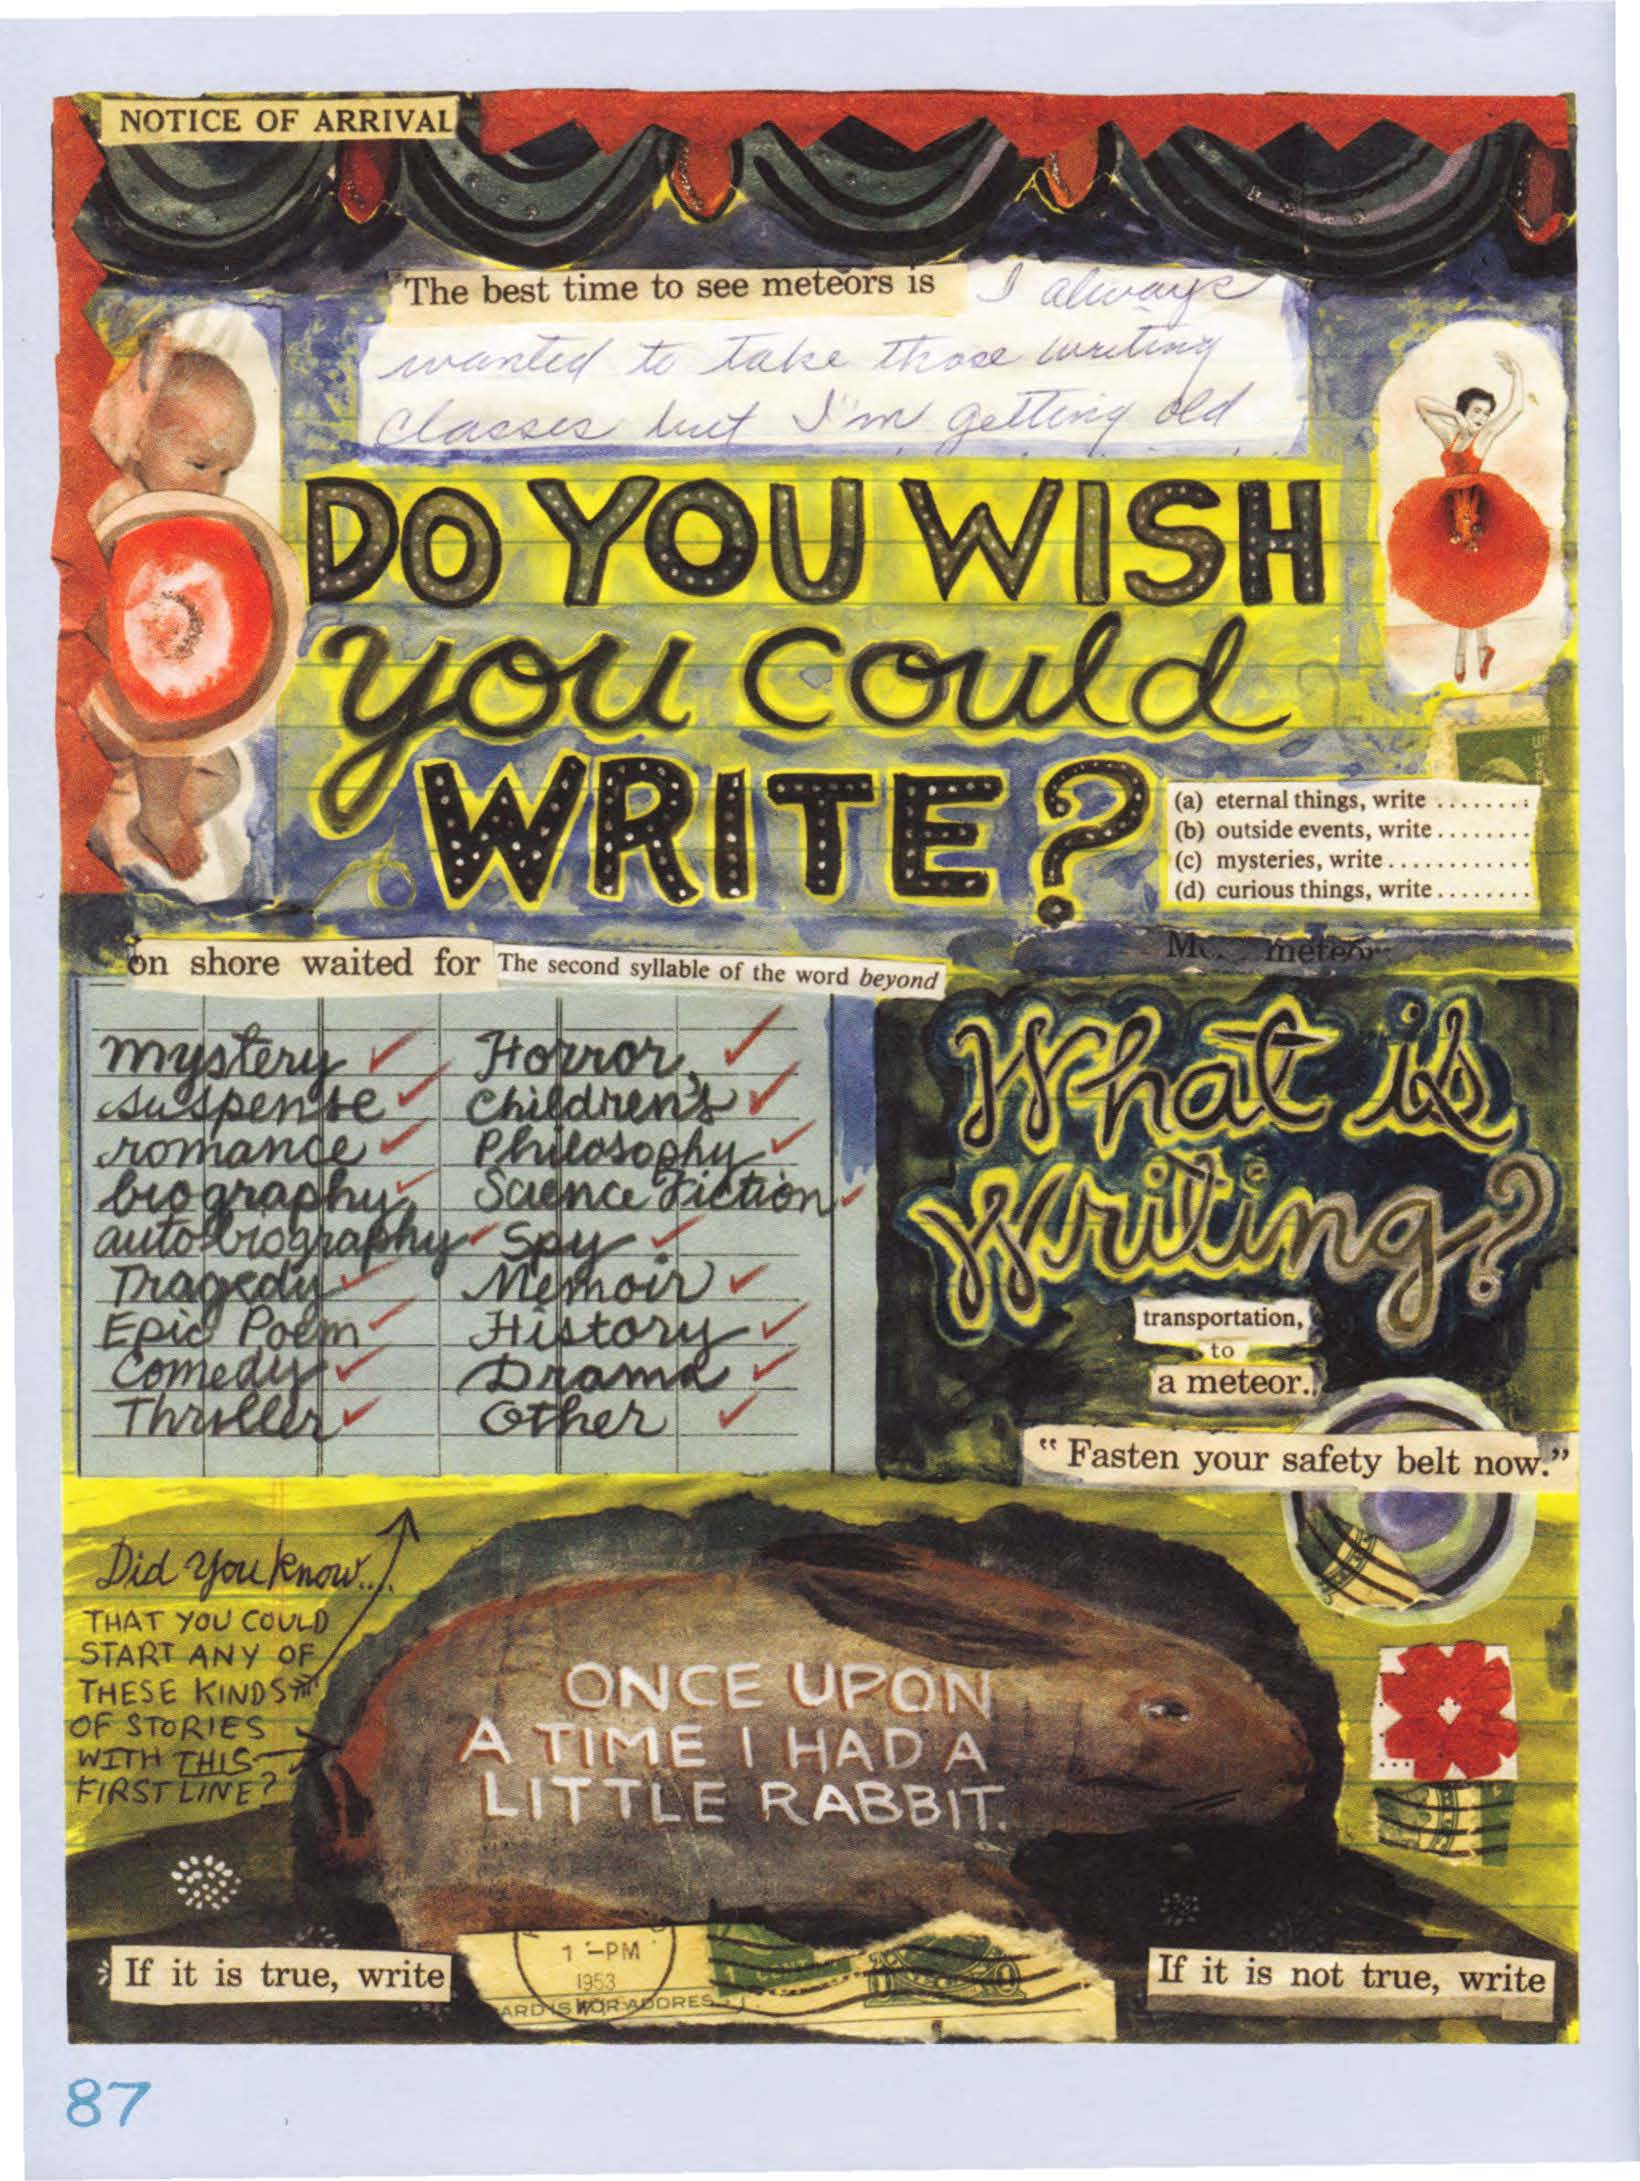 NOTICE OF ARRIVAL
The best time to see meteors is I always
wanted to take those writing
classes but I'm getting old
DO YOU WISH
you could
WRITE?
(a) eternal things, write ........
(b) outside events, write ........
(c) mysteries, write ............
(d) curious things, write ........
on shore waited for The second syllable of the word beyond
meteor
mystery ✓ Horror ✓
suspense ✓ Children's ✓
romance ✓ Philosophy ✓
biography ✓ Science Fiction ✓
autobiography ✓ Spy ✓
Tragedy ✓ Memoir ✓
Epic Poem ✓ History ✓
Comedy ✓ Drama ✓
Thriller ✓ Other ✓
What is
Writing?
transportation,
to
a meteor.
“Fasten your safety belt now.”
Did you know...
THAT YOU COULD
START ANY OF
THESE KINDS
OF STORIES
WITH THIS
FIRST LINE?
ONCE UPON
A TIME I HAD A
LITTLE RABBIT.
If it is true, write
1 -PM
1953
If it is not true, write
87